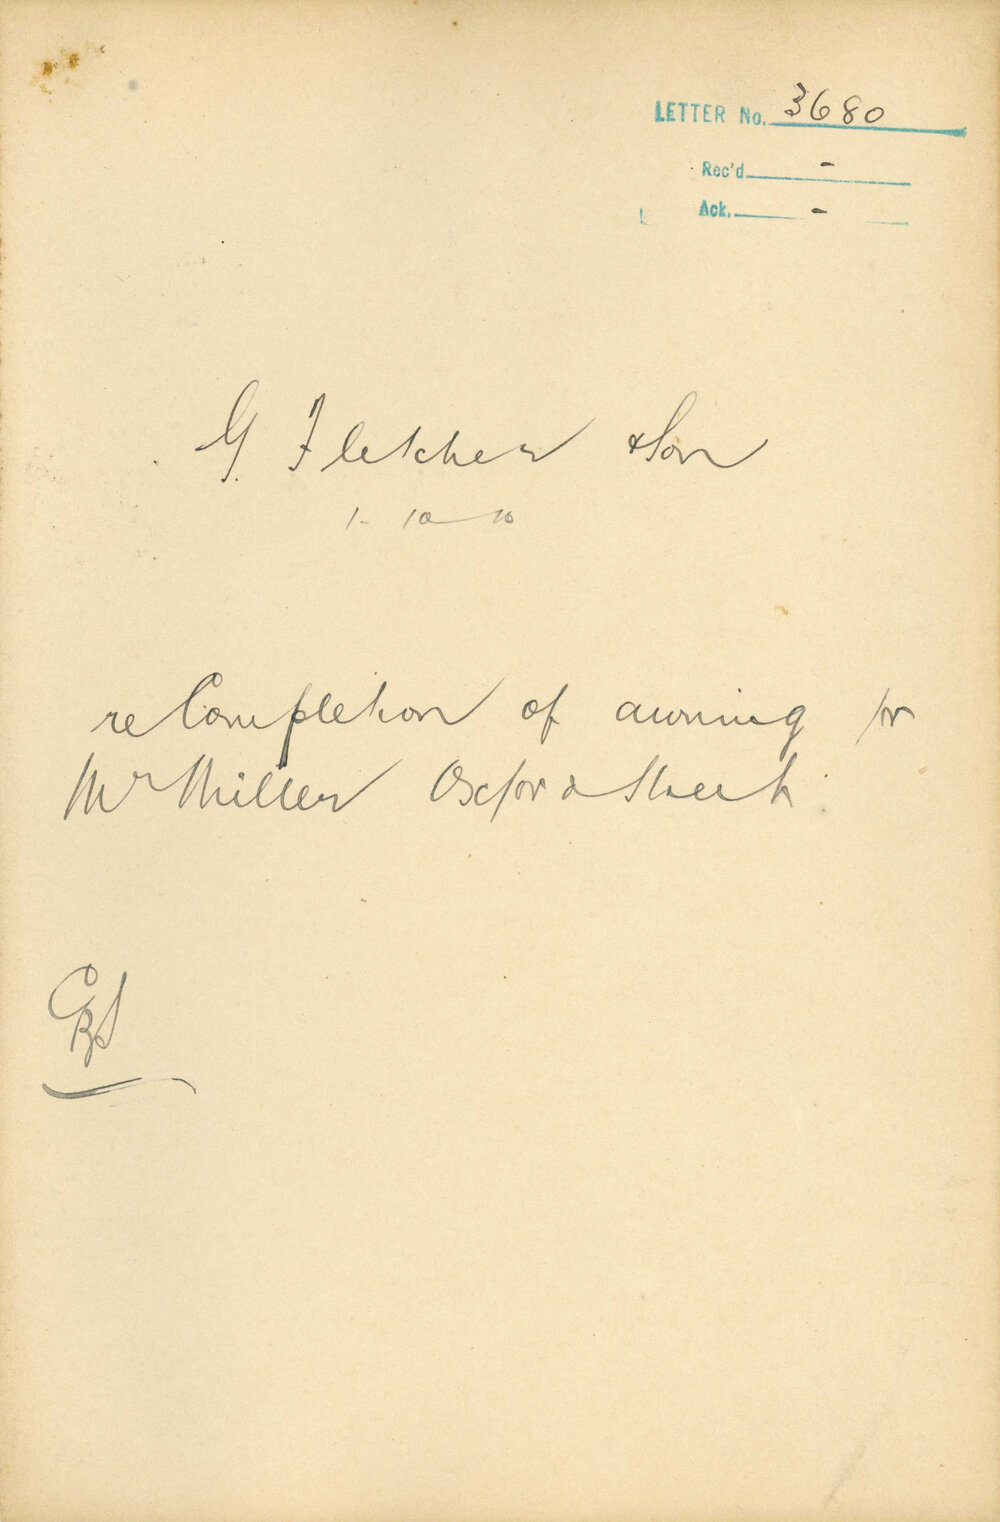 LETTER No. 3680
Rec'd -
Ack. -
G. Fletcher & Son
1-10-10
re Completion of awning for
Mr Miller Oxford Street